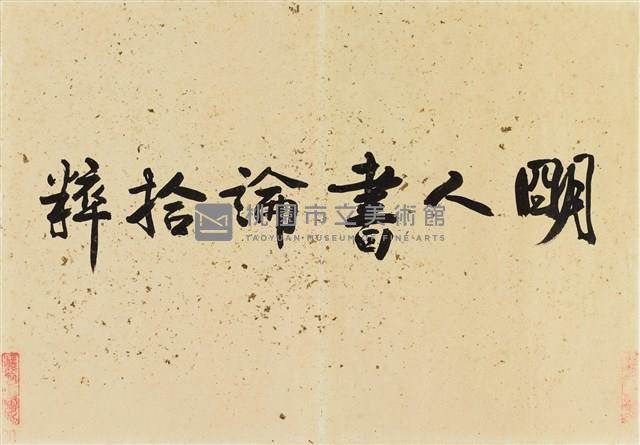 明人書論拾粹
桃園市立美術館
TAOYUAN MUSEUM OF FINE ARTS